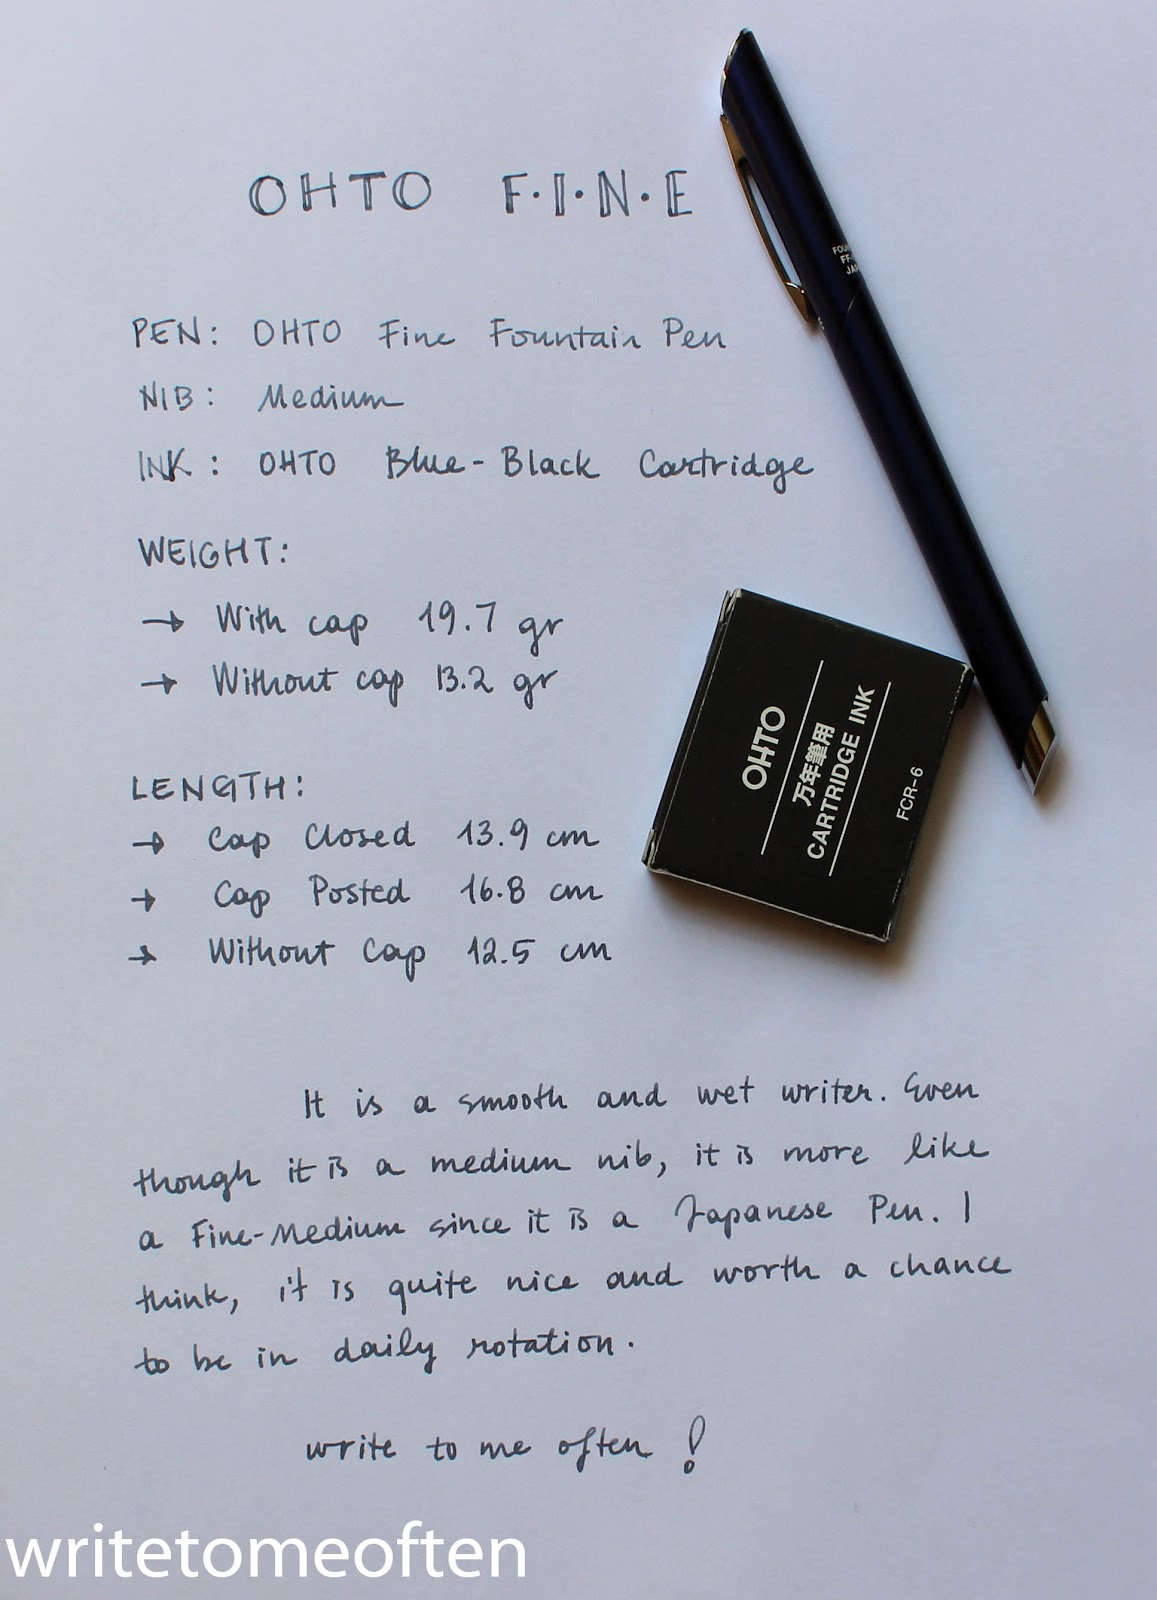 OHTO F·I·N·E
PEN: OHTO Fine Fountain Pen
NIB: Medium
INK: OHTO Blue-Black Cartridge
WEIGHT:
→ With cap 19.7 gr
→ Without cap 13.2 gr
LENGTH:
→ Cap Closed 13.9 cm
→ Cap Posted 16.8 cm
→ Without Cap 12.5 cm
It is a smooth and wet writer. Even
though it is a medium nib, it is more like
a Fine-Medium since it is a Japanese Pen. I
think, it is quite nice and worth a chance
to be in daily rotation.
write to me often!
OHTO
万年筆用
CARTRIDGE INK
FCR-6
writetomeoften